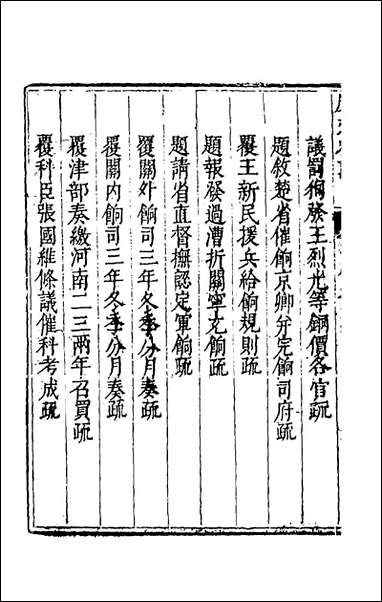 議罰狥發王烈光等鋼價各官疏
題敘楚省催餉京卿并完餉司府疏
覆王新民援兵給餉規則疏
題報發過漕折關寧充餉疏
題請省直督撫認定軍餉疏
覆關外餉司三年冬季分月奏疏
覆關内餉司三年冬季分月奏疏
覆津部奏繳河南二三兩年召買疏
覆科臣張國維條議催科考成疏